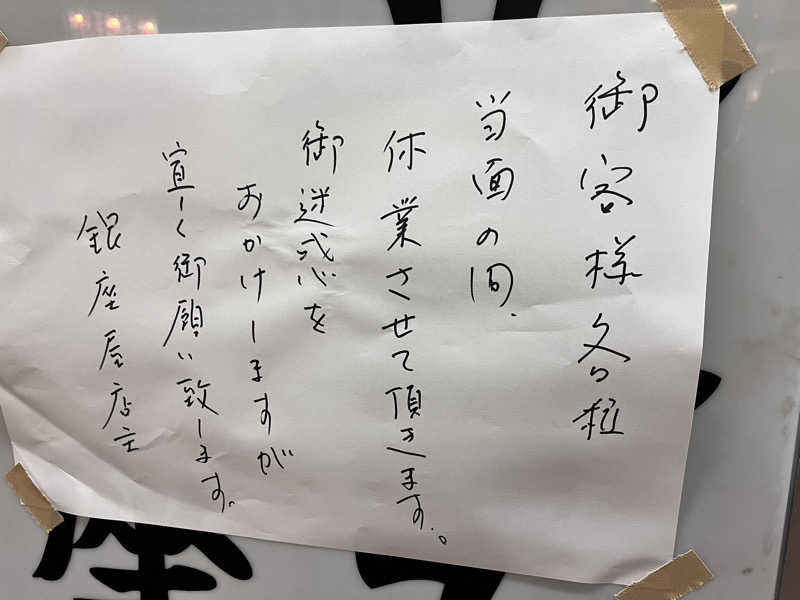 御客様各位
当面の間、
休業させて頂きます。
御迷惑を
おかけしますが
宜しく御願い致します。
銀座屋店主